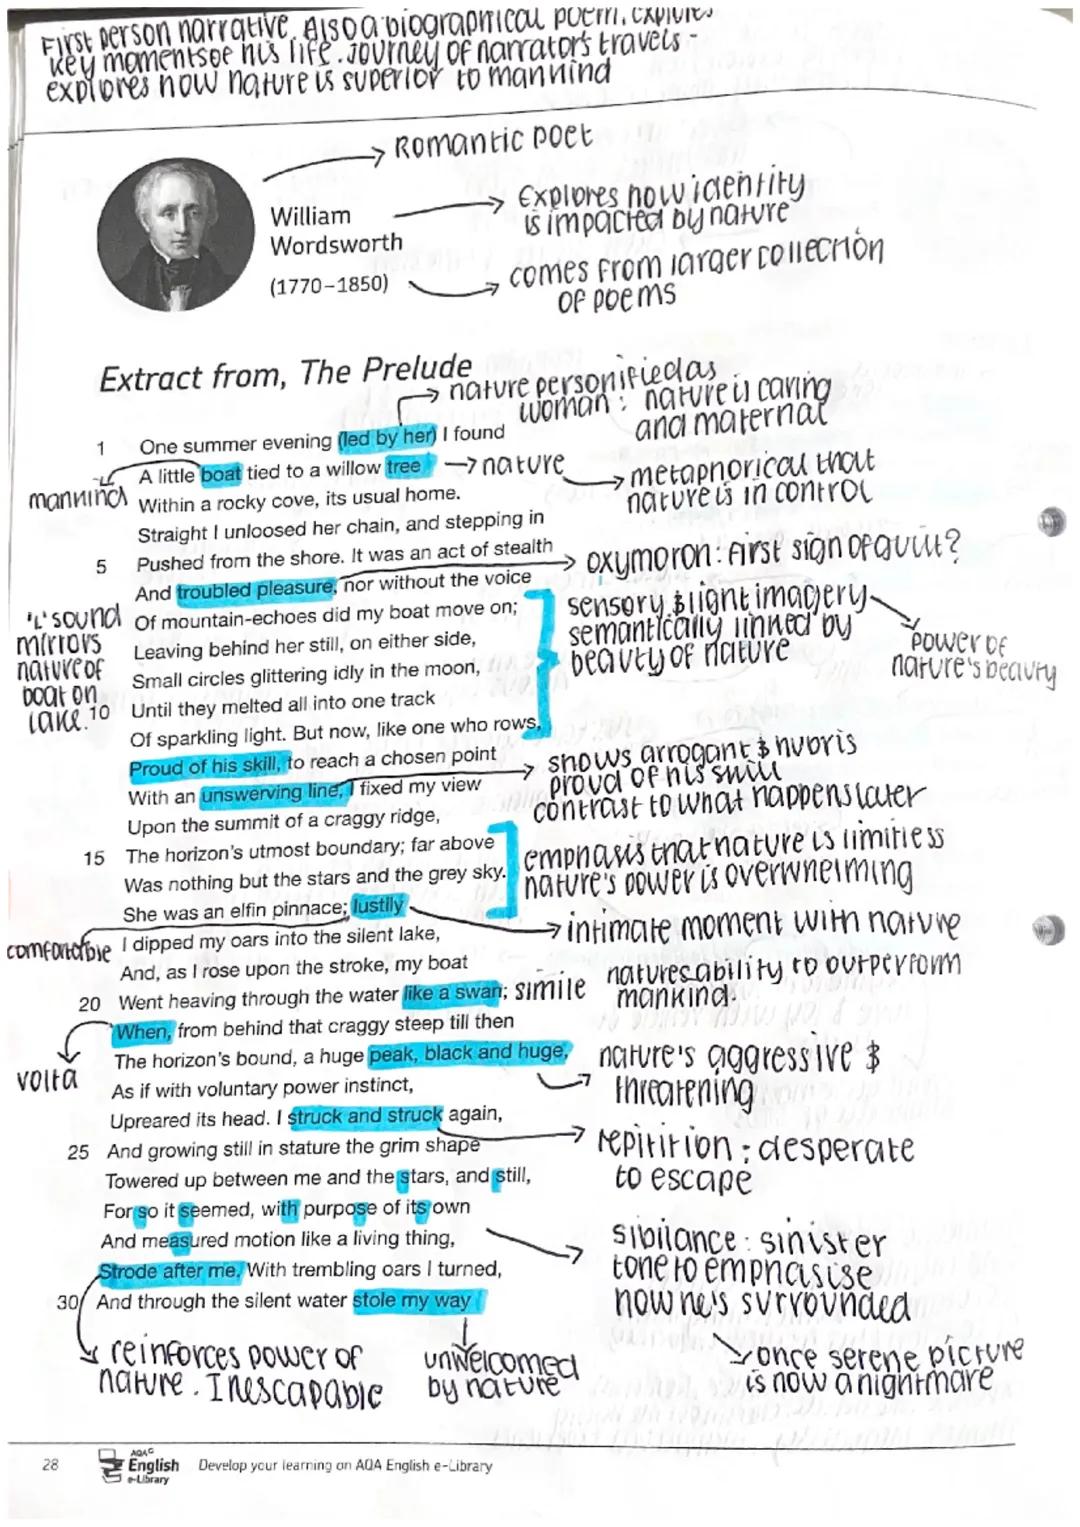 First person narrative. Also a biographical poem, explores
key moments of his life. Journey of narrator's travels -
explores how nature is superior to mankind
Romantic poet
William
Wordsworth
(1770–1850)
Explores how identity
is impacted by nature
comes from larger collection
of poems
Extract from, The Prelude
nature personified as
woman: nature is caring
and maternal
1 One summer evening (led by her) I found
A little boat tied to a willow tree
nature
mankind
metaphorical that
nature is in control
Within a rocky cove, its usual home.
Straight I unloosed her chain, and stepping in
5 Pushed from the shore. It was an act of stealth
oxymoron: First sign of guilt?
And troubled pleasure, nor without the voice
Of mountain-echoes did my boat move on;
Leaving behind her still, on either side,
Small circles glittering idly in the moon,
10 Until they melted all into one track
Of sparkling light. But now, like one who rows,
'L' sound
mirrors
nature of
boat on
lake.
sensory & light imagery
semantically linked by
beauty of nature
power of
nature's beauty
Proud of his skill, to reach a chosen point
With an unswerving line, I fixed my view
Upon the summit of a craggy ridge,
shows arrogant & hubris
proud of his skill
contrast to what happens later
15 The horizon's utmost boundary; far above
Was nothing but the stars and the grey sky.
emphasis that nature is limitless
nature's power is overwhelming
She was an elfin pinnace; lustily
intimate moment with nature
comfortable
I dipped my oars into the silent lake,
And, as I rose upon the stroke, my boat
20 Went heaving through the water like a swan;
simile
natures ability to outperform
mankind.
When, from behind that craggy steep till then
volta
The horizon's bound, a huge peak, black and huge,
nature's aggressive &
threatening
As if with voluntary power instinct,
Upreared its head. I struck and struck again,
repitition: desperate
to escape
25 And growing still in stature the grim shape
Towered up between me and the stars, and still,
For so it seemed, with purpose of its own
And measured motion like a living thing,
sibilance: sinister
tone to emphasise
how he's surrounded
once serene picture
is now a nightmare
Strode after me. With trembling oars I turned,
30 And through the silent water stole my way
reinforces power of
nature. Inescapable
unwelcomed
by nature
28
AQA
English
e-Library
Develop your learning on AQA English e-Library